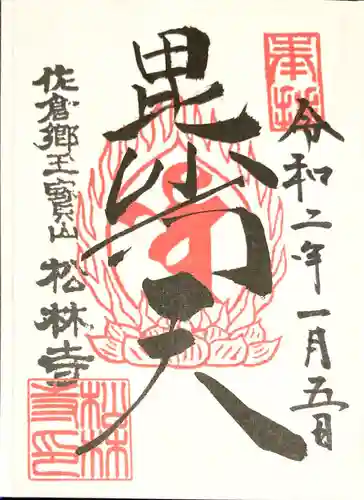 奉拝
令和二年一月五日
毘沙門天
佐倉郷玉寳山 松林寺
松林寺印